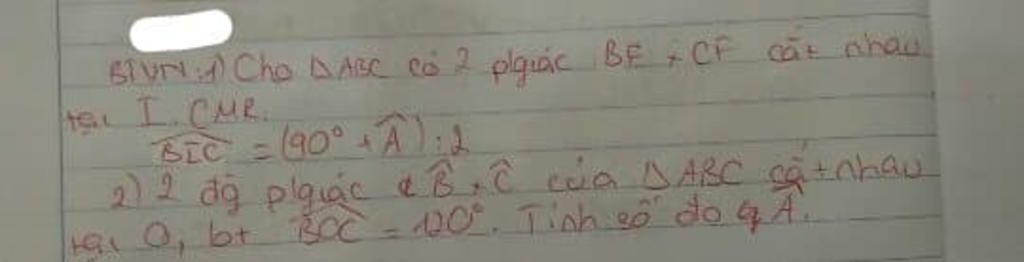 BTVN: 1) Cho ΔABC có 2 plgiác BE, CF cắt nhau
tại I. CMR.
$\widehat{BIC}$ = (90° + $\widehat{A}$) : 2
2) 2 đg plgiác $\widehat{B}$, $\widehat{C}$ của ΔABC cắt nhau
tại O, bt $\widehat{BOC}$ = 120°. Tính số đo g $\widehat{A}$.